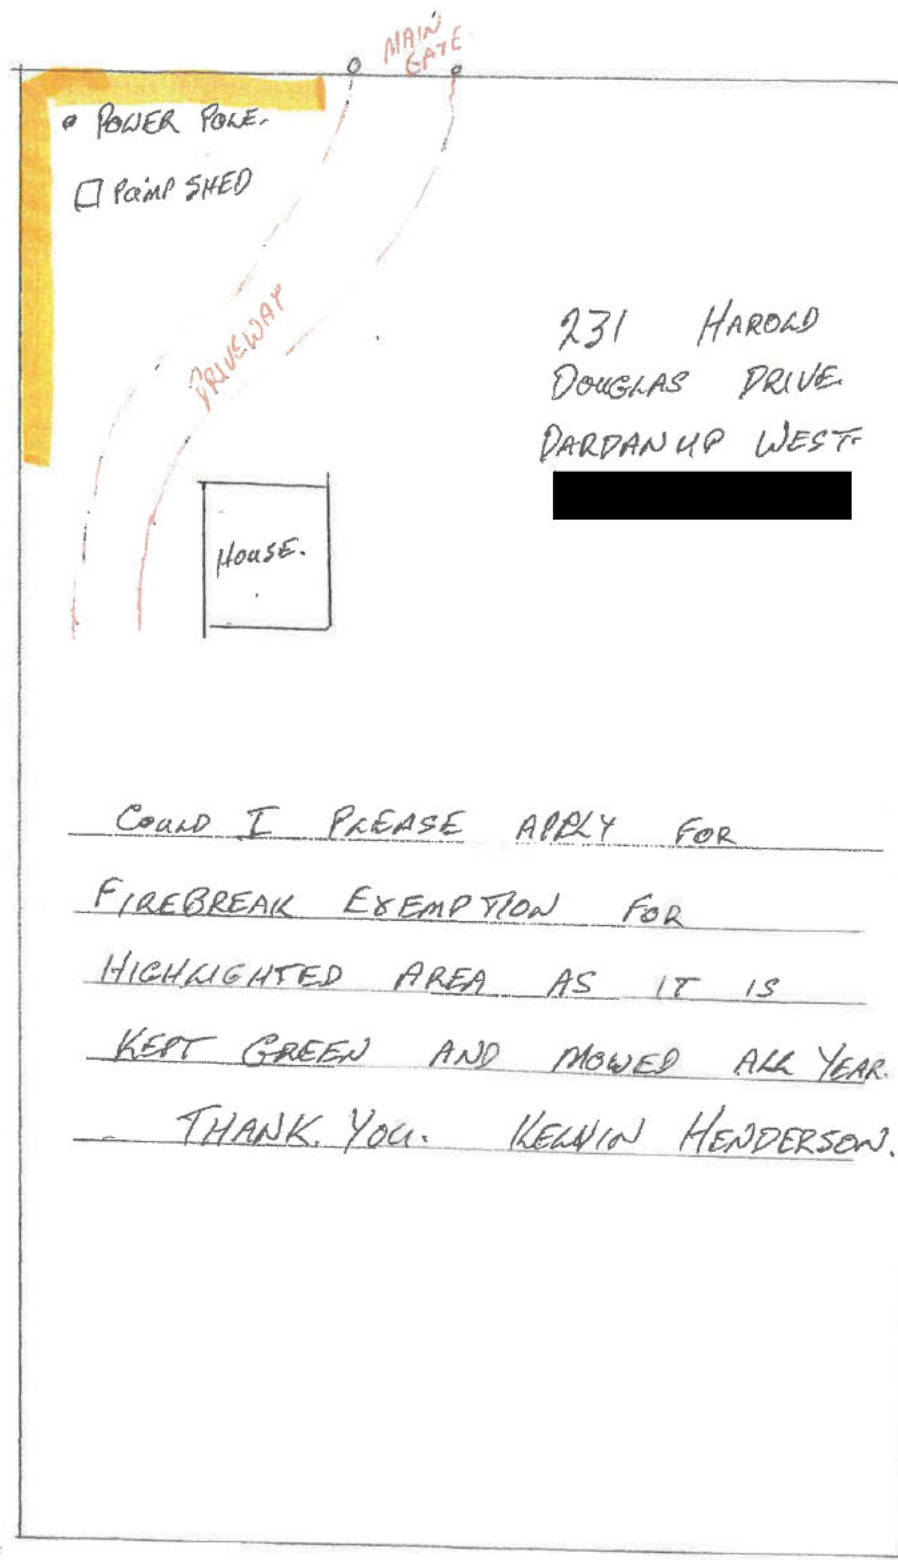 MAIN
GATE
POWER POLE.
PUMP SHED
DRIVEWAY
231 HAROLD
DOUGLAS DRIVE
DARDANUP WEST.
HOUSE.
COULD I PLEASE APPLY FOR
FIREBREAK EXEMPTION FOR
HIGHLIGHTED AREA AS IT IS
KEPT GREEN AND MOWED ALL YEAR.
THANK YOU. KELVIN HENDERSON.